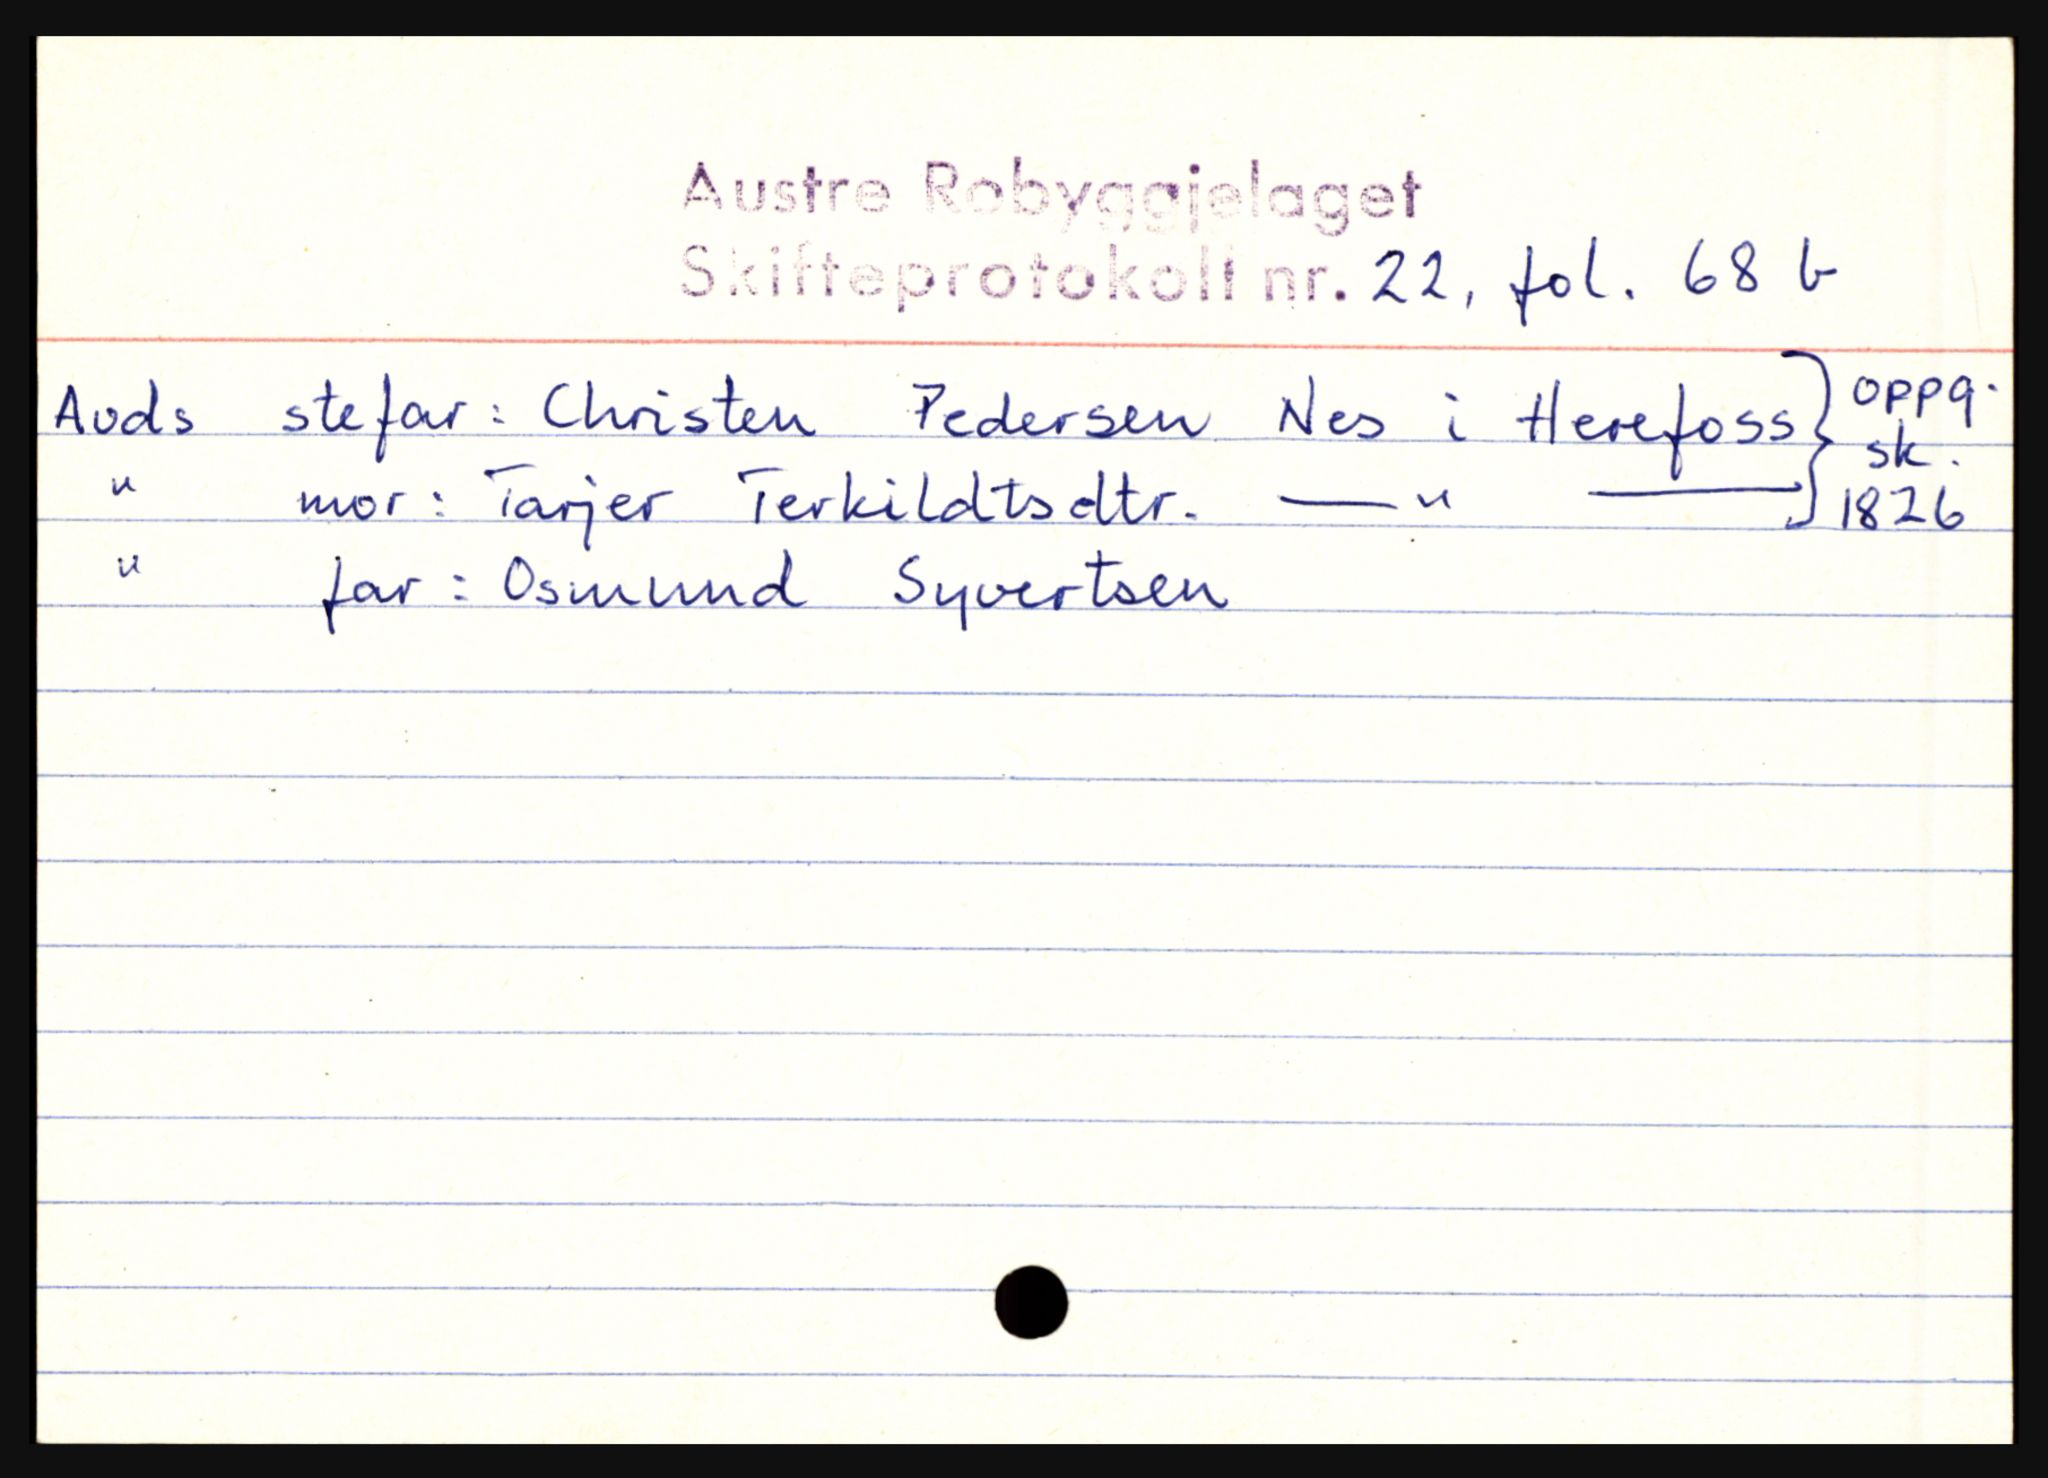 Austre Robyggjelaget
Skifteprotokoll nr. 22, fol. 68 b
Auds stefar: Christen Pedersen Nes i Herefoss } oppg. sk. 1826
" mor: Tarjer Terkildtsdtr. — " —
" far: Osmund Syvertsen